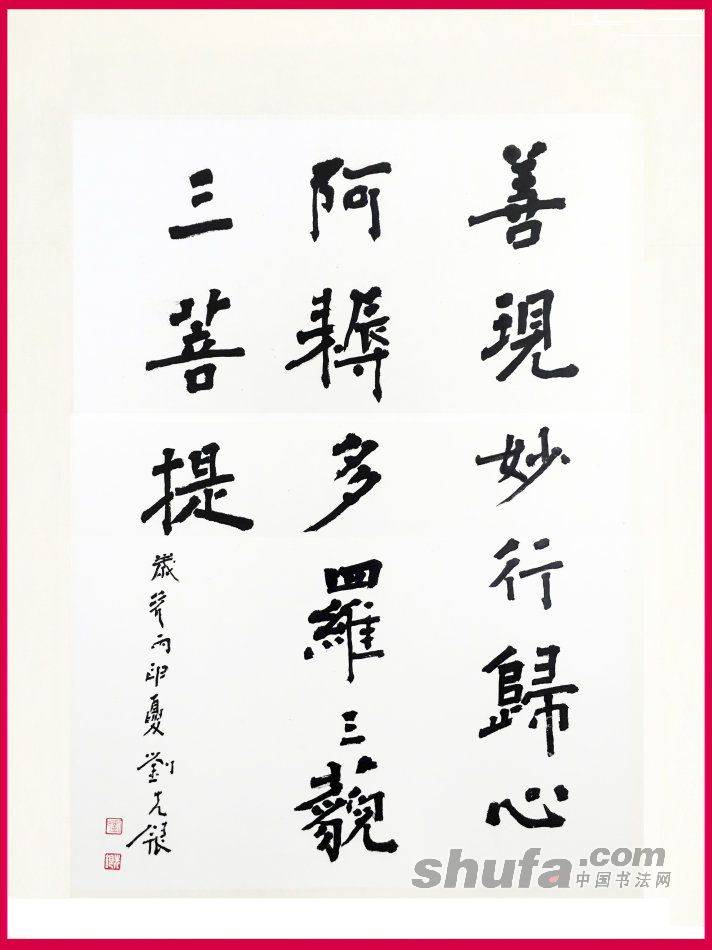 善現妙行歸心
阿耨多羅三藐
三菩提
歲丙申夏 劉
shufa.com
中国书法网